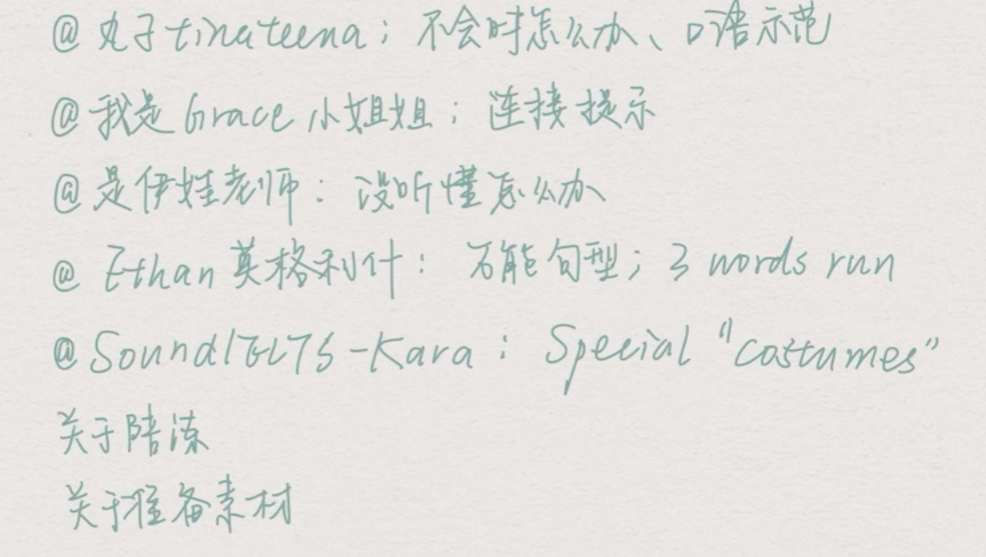 @ 丸子tinateena；不会时怎么办、口语示范
@ 我是Grace小姐姐；连接提示
@ 是伊娃老师：没听懂怎么办
@ Ethan英格利什：万能句型；3 words run
@ SoundIELTS-Kara：Special "costumes"
关于陪练
关于准备素材